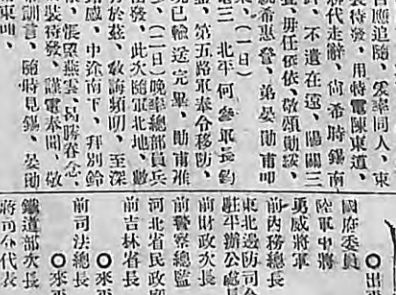 百應追隨、雲泰同人、東
裝待發、用特電陳東道、
代走辭、尚希時錫南
不遺在遠、陽關三
毋任依依、敬頌勛綏、
統希惠詧、弟晏勛甫叩
（一日）
電三 北平何參軍長鈞
第五路軍奉令移防、
已輸送完畢、勛甫雅
（二日）晚率總部員兵
發、此次隨軍北地、數
於茲、敎誨頻明、至深
感、中途南下、拜別鈴
悵望燕雲、曷勝眷念、
裝待發、謹電奉聞、敬
訓言、隨時見錫、晏勛
東叩、
○出
國府委員
陸軍中將
勇威將軍
前內務總長
東北邊防司
駐平辦公處長
前財政次長
前警察總監
河北省民政
前吉林省長
○來
前司法總長
○來
鐵道部次長
將司令代表